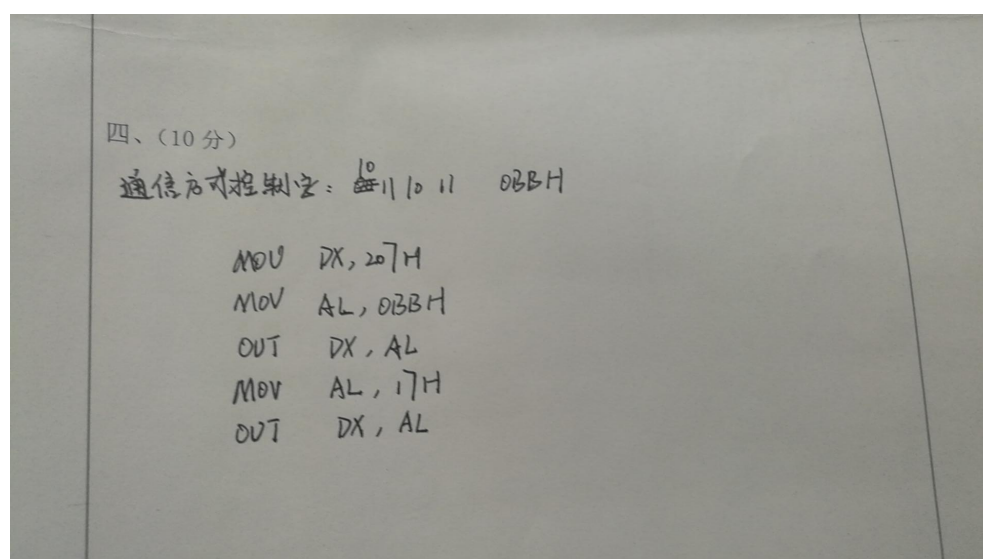 四、（10 分）
通信方式控制字： 10 11 10 11 0BBH
MOV DX, 207H
MOV AL, 0BBH
OUT DX, AL
MOV AL, 17H
OUT DX, AL